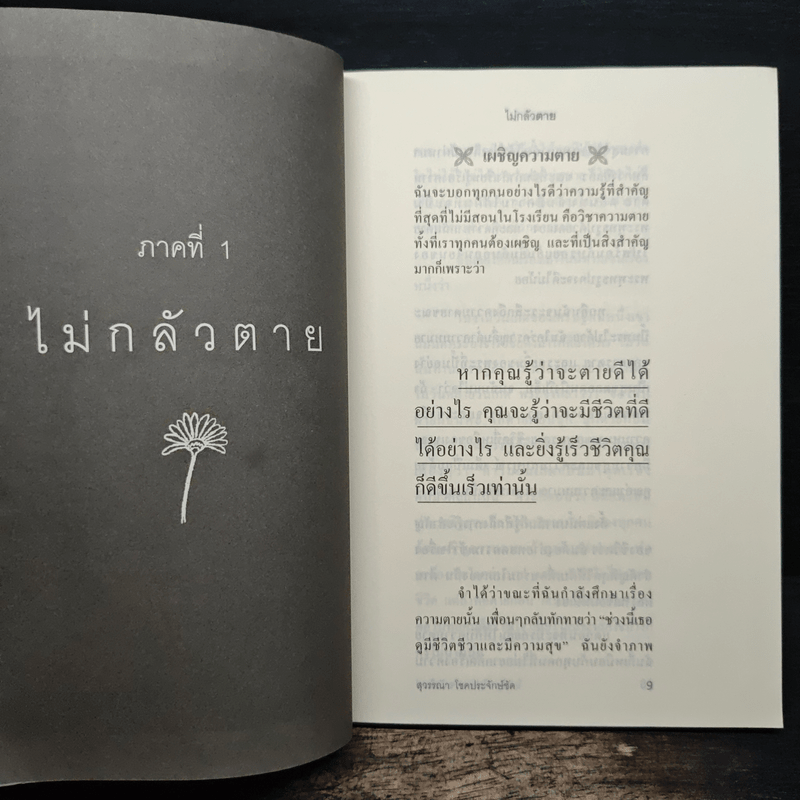 ภาคที่ 1
ไม่กลัวตาย
ไม่กลัวตาย
เผชิญความตาย
ฉันจะบอกทุกคนอย่างไรดีว่าความรู้ที่สำคัญ
ที่สุดที่ไม่มีสอนในโรงเรียน คือวิชาความตาย
ทั้งที่เราทุกคนต้องเผชิญ และที่เป็นสิ่งสำคัญ
มากก็เพราะว่า
หากคุณรู้ว่าจะตายดีได้
อย่างไร คุณจะรู้ว่าจะมีชีวิตที่ดี
ได้อย่างไร และยิ่งรู้เร็วชีวิตคุณ
ก็ดีขึ้นเร็วเท่านั้น
จำได้ว่าขณะที่ฉันกำลังศึกษาเรื่อง
ความตายนั้น เพื่อนๆกลับทักทายว่า “ช่วงนี้เธอ
ดูมีชีวิตชีวาและมีความสุข” ฉันยังจำภาพ
สุวรรณา โชคประจักษ์ชัด
9